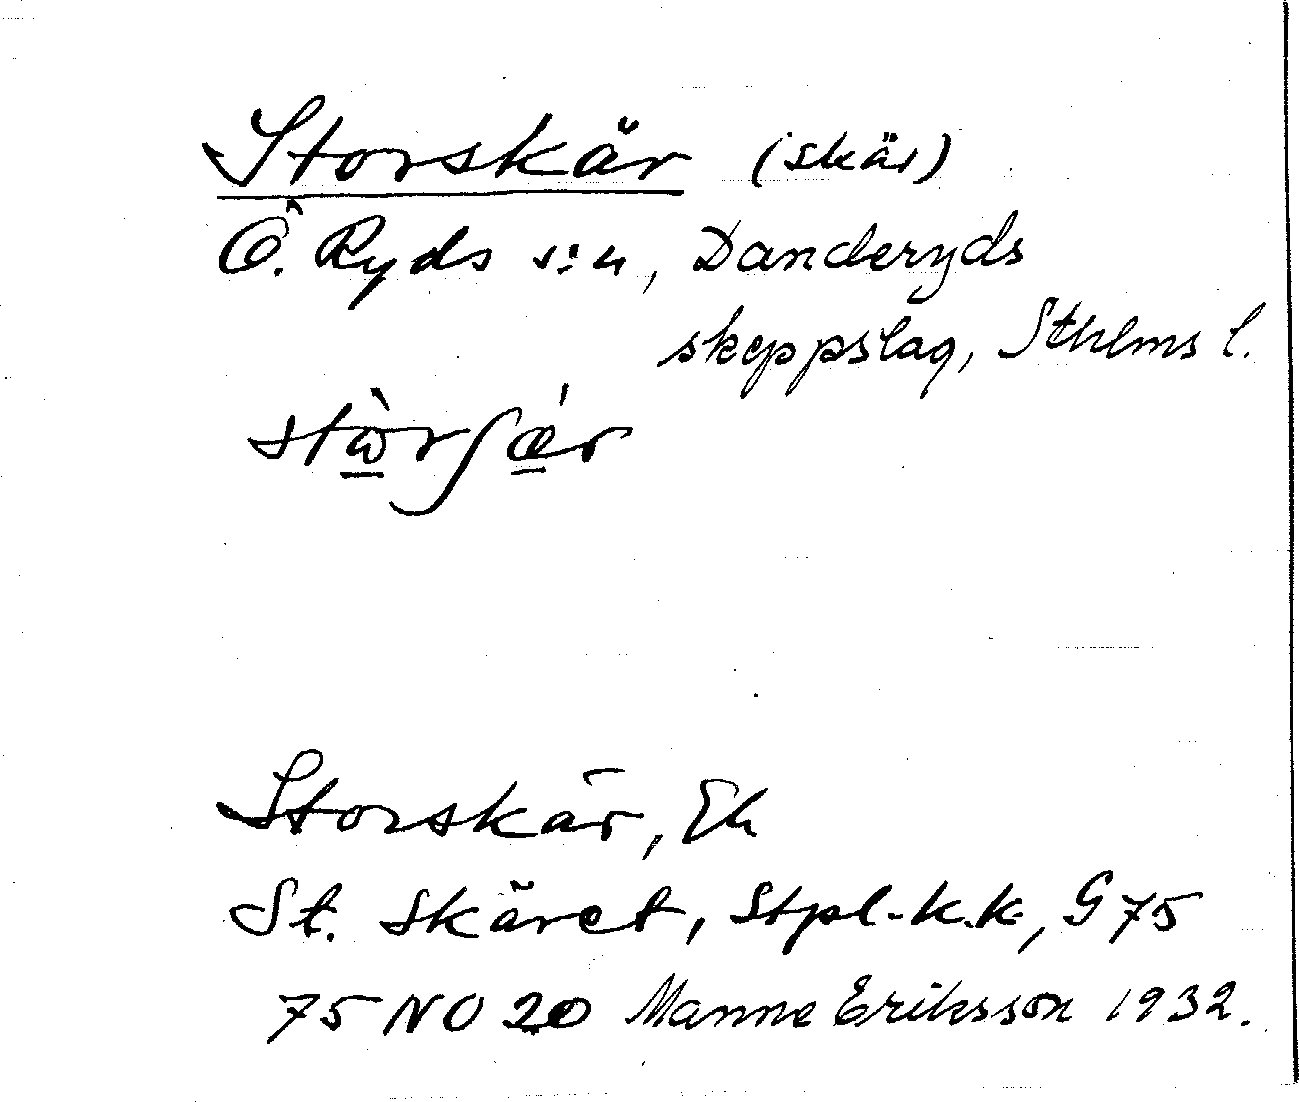 Storskär (skär)
Ö. Ryds s:n, Danderyds
skeppslag, Sthlms l.
stὼ̠rʃǽ̠r
Storskär, Ek
St. Skäret, Stpl-k.k, G 75
75 NO 20 Manne Eriksson 1932.